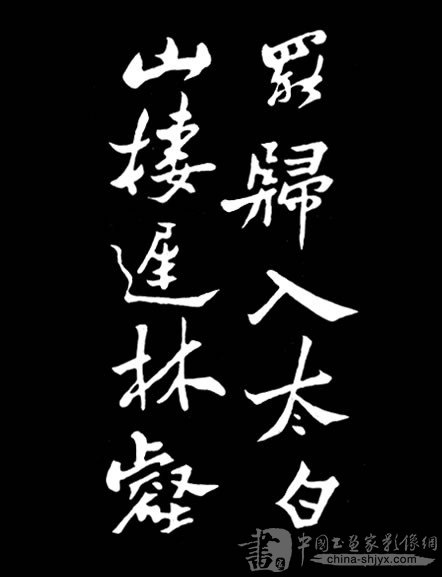 罷歸入太白
山棲遲林壑
書
中國書畫家影像網
china-shjyx.com